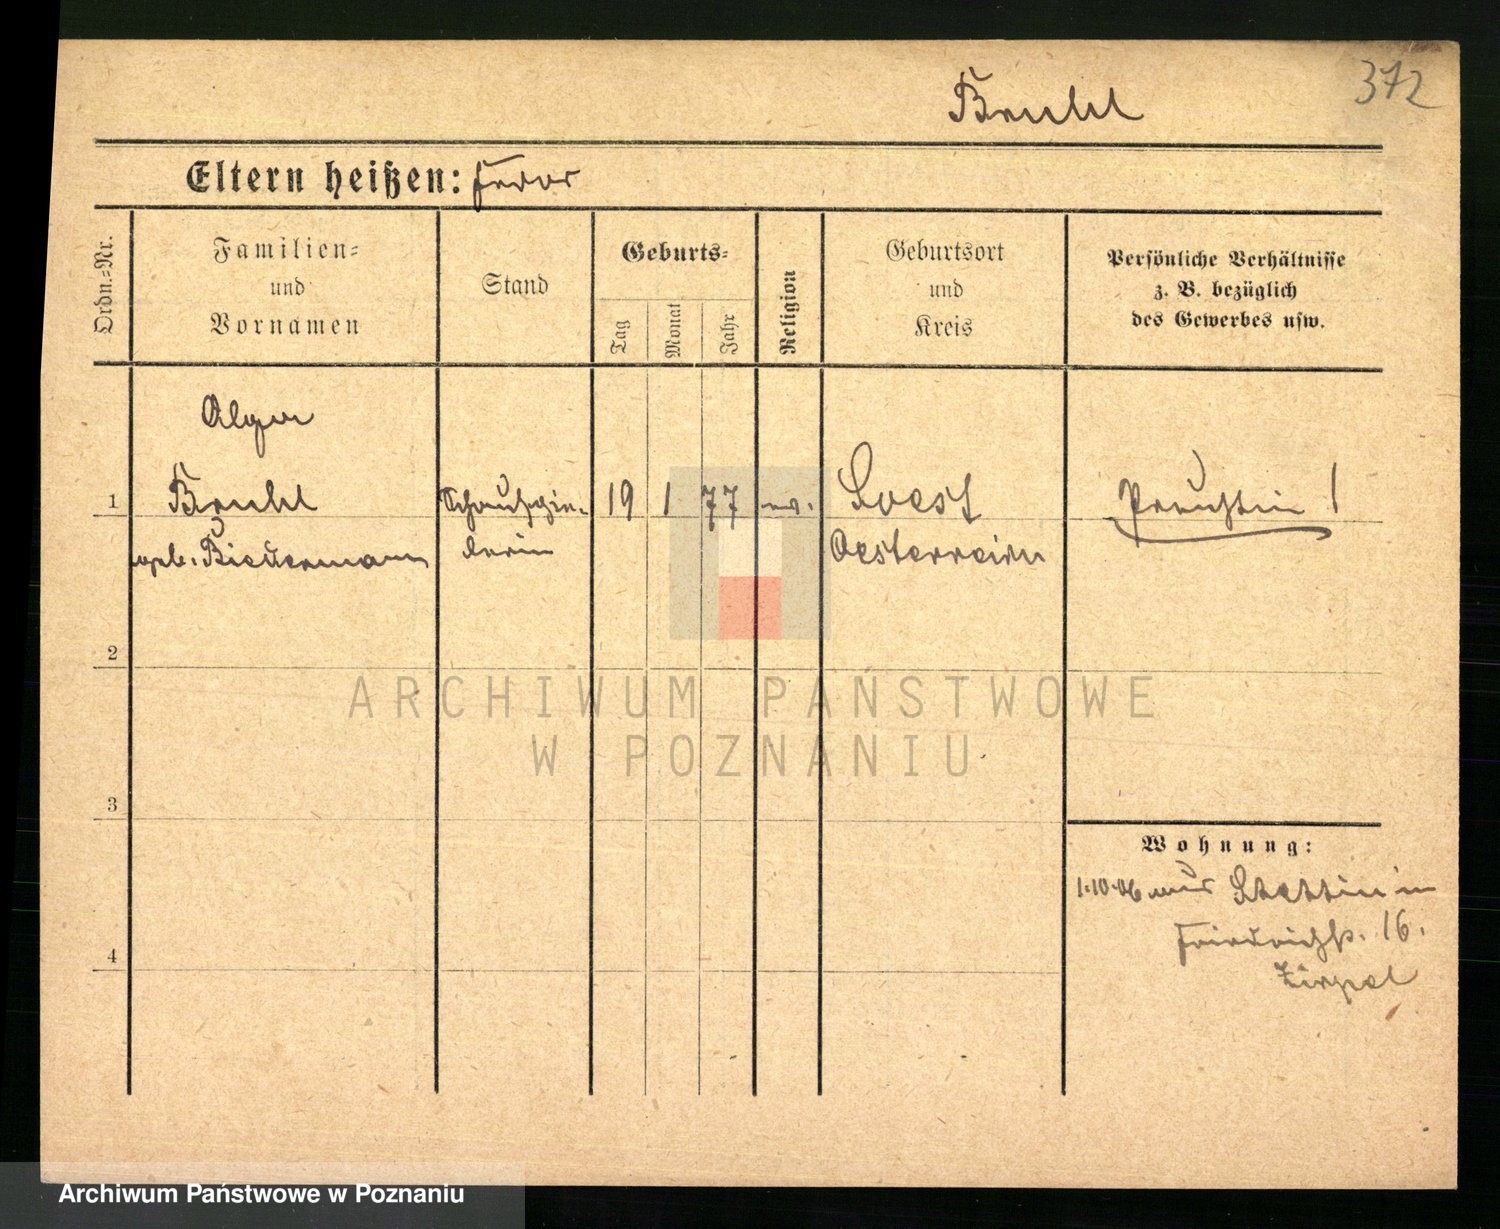 372
Bruhl
Eltern heißen: Fedor
Ordn.-Nr.
Familien-
und
Vornamen
Stand
Geburts-
Tag
Monat
Jahr
Religion
Geburtsort
und
Kreis
Persönliche Verhältnisse
z. B. bezüglich
des Gewerbes usw.
Olga
1 Bruhl Schauspie- 19 1 77 ev. Soest !
geb. Biedermann lerin Oesterreich
2
3
4
Wohnung:
1.10.06 aus Stettin in
Friedrichstr. 16.
Zirpel
ARCHIWUM PAŃSTWOWE
W POZNANIU
Archiwum Państwowe w Poznaniu